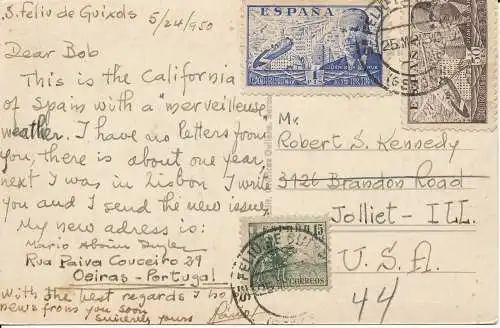 S. Feliu de Guixols 5/24/950
Dear Bob
This is the California
of Spain with a "merveilleuse"
weather. I have no letters from
you, there is about one year,
next I was in Lisbon I write
you and I send the new issues
My new adress is:
Mario
Rua Paiva Couceiro 29
Oeiras - Portugal
With the best regards I ho
news from you soon
Sincerely yours
Mr.
Robert S. Kennedy
3426 Brandon Road
Jolliet - ILL.
U.S.A.
44
ESPAÑA
1
PTA
ESPAÑA
50
ESPAÑA
15
CORREOS